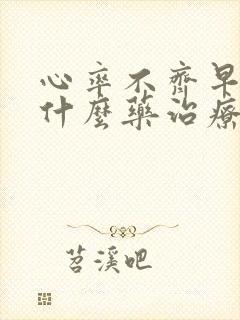 心率不齊早
什麼藥治療
苕溪吧